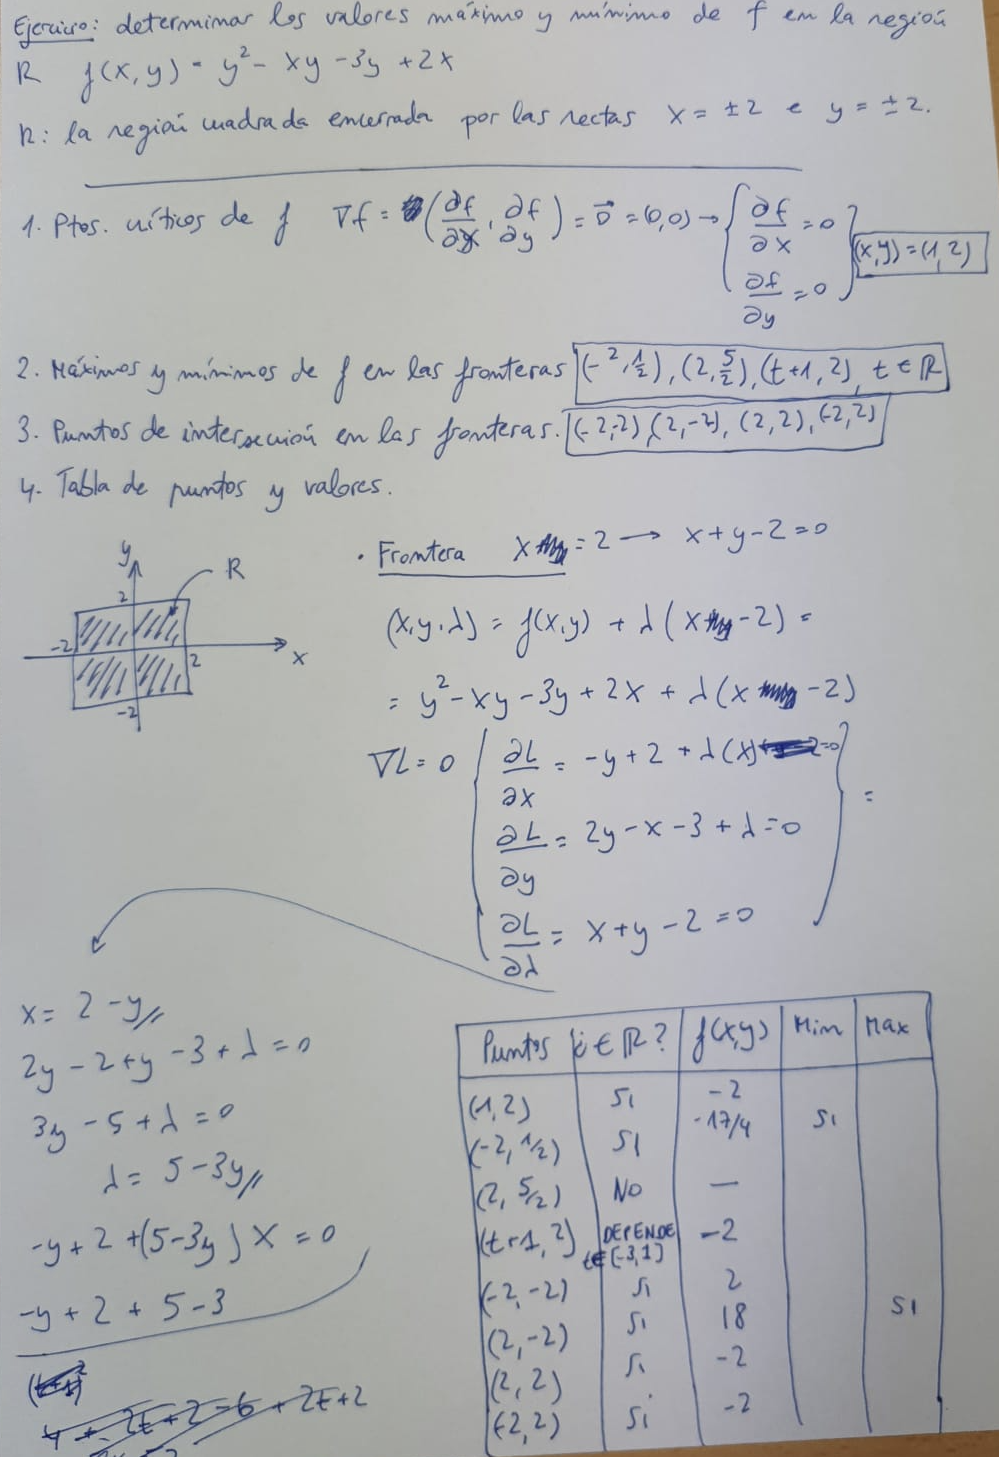 Ejercicio: determinar los valores máximo y mínimo de f en la región
R f(x,y) = y² - xy - 3y + 2x
R: la región cuadrada encerrada por las rectas x = ±2 e y = ±2.
1. Ptos. críticos de f ∇f = (∂f/∂x, ∂f/∂y) = 0⃗ = (0,0) → { ∂f/∂x = 0
∂f/∂y = 0 } (x,y) = (1,2)
2. Máximos y mínimos de f en las fronteras (-2,1/2), (2,5/2), (t+1,2), t ∈ ℝ
3. Puntos de intersección en las fronteras. (-2,-2), (2,-2), (2,2), (-2,2)
4. Tabla de puntos y valores.
y
2
R
-2
2
x
-2
· Frontera x = 2 → x + y - 2 = 0
(x,y,λ) = f(x,y) + λ(x - 2) =
= y² - xy - 3y + 2x + λ(x - 2)
∇L = 0 { ∂L/∂x = -y + 2 + λ(x) = 0
∂L/∂y = 2y - x - 3 + λ = 0
∂L/∂λ = x + y - 2 = 0 } =
x = 2 - y
2y - 2 + y - 3 + λ = 0
3y - 5 + λ = 0
λ = 5 - 3y
-y + 2 + (5 - 3y) x = 0
-y + 2 + 5 - 3
Puntos ¿∈ R? f(x,y) Min Max
(1,2) SI -2
(-2,1/2) SI -17/4 SI
(2,5/2) NO —
(t+1,2) DEPENDE t∈[-3,1] -2
(-2,-2) SI 2
(2,-2) SI 18 SI
(2,2) SI -2
(-2,2) SI -2